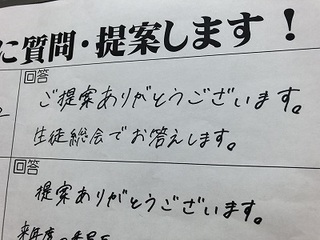 に質問・提案します！
回答
ご提案ありがとうございます。
生徒総会でお答えします。
回答
提案ありがとうございます。